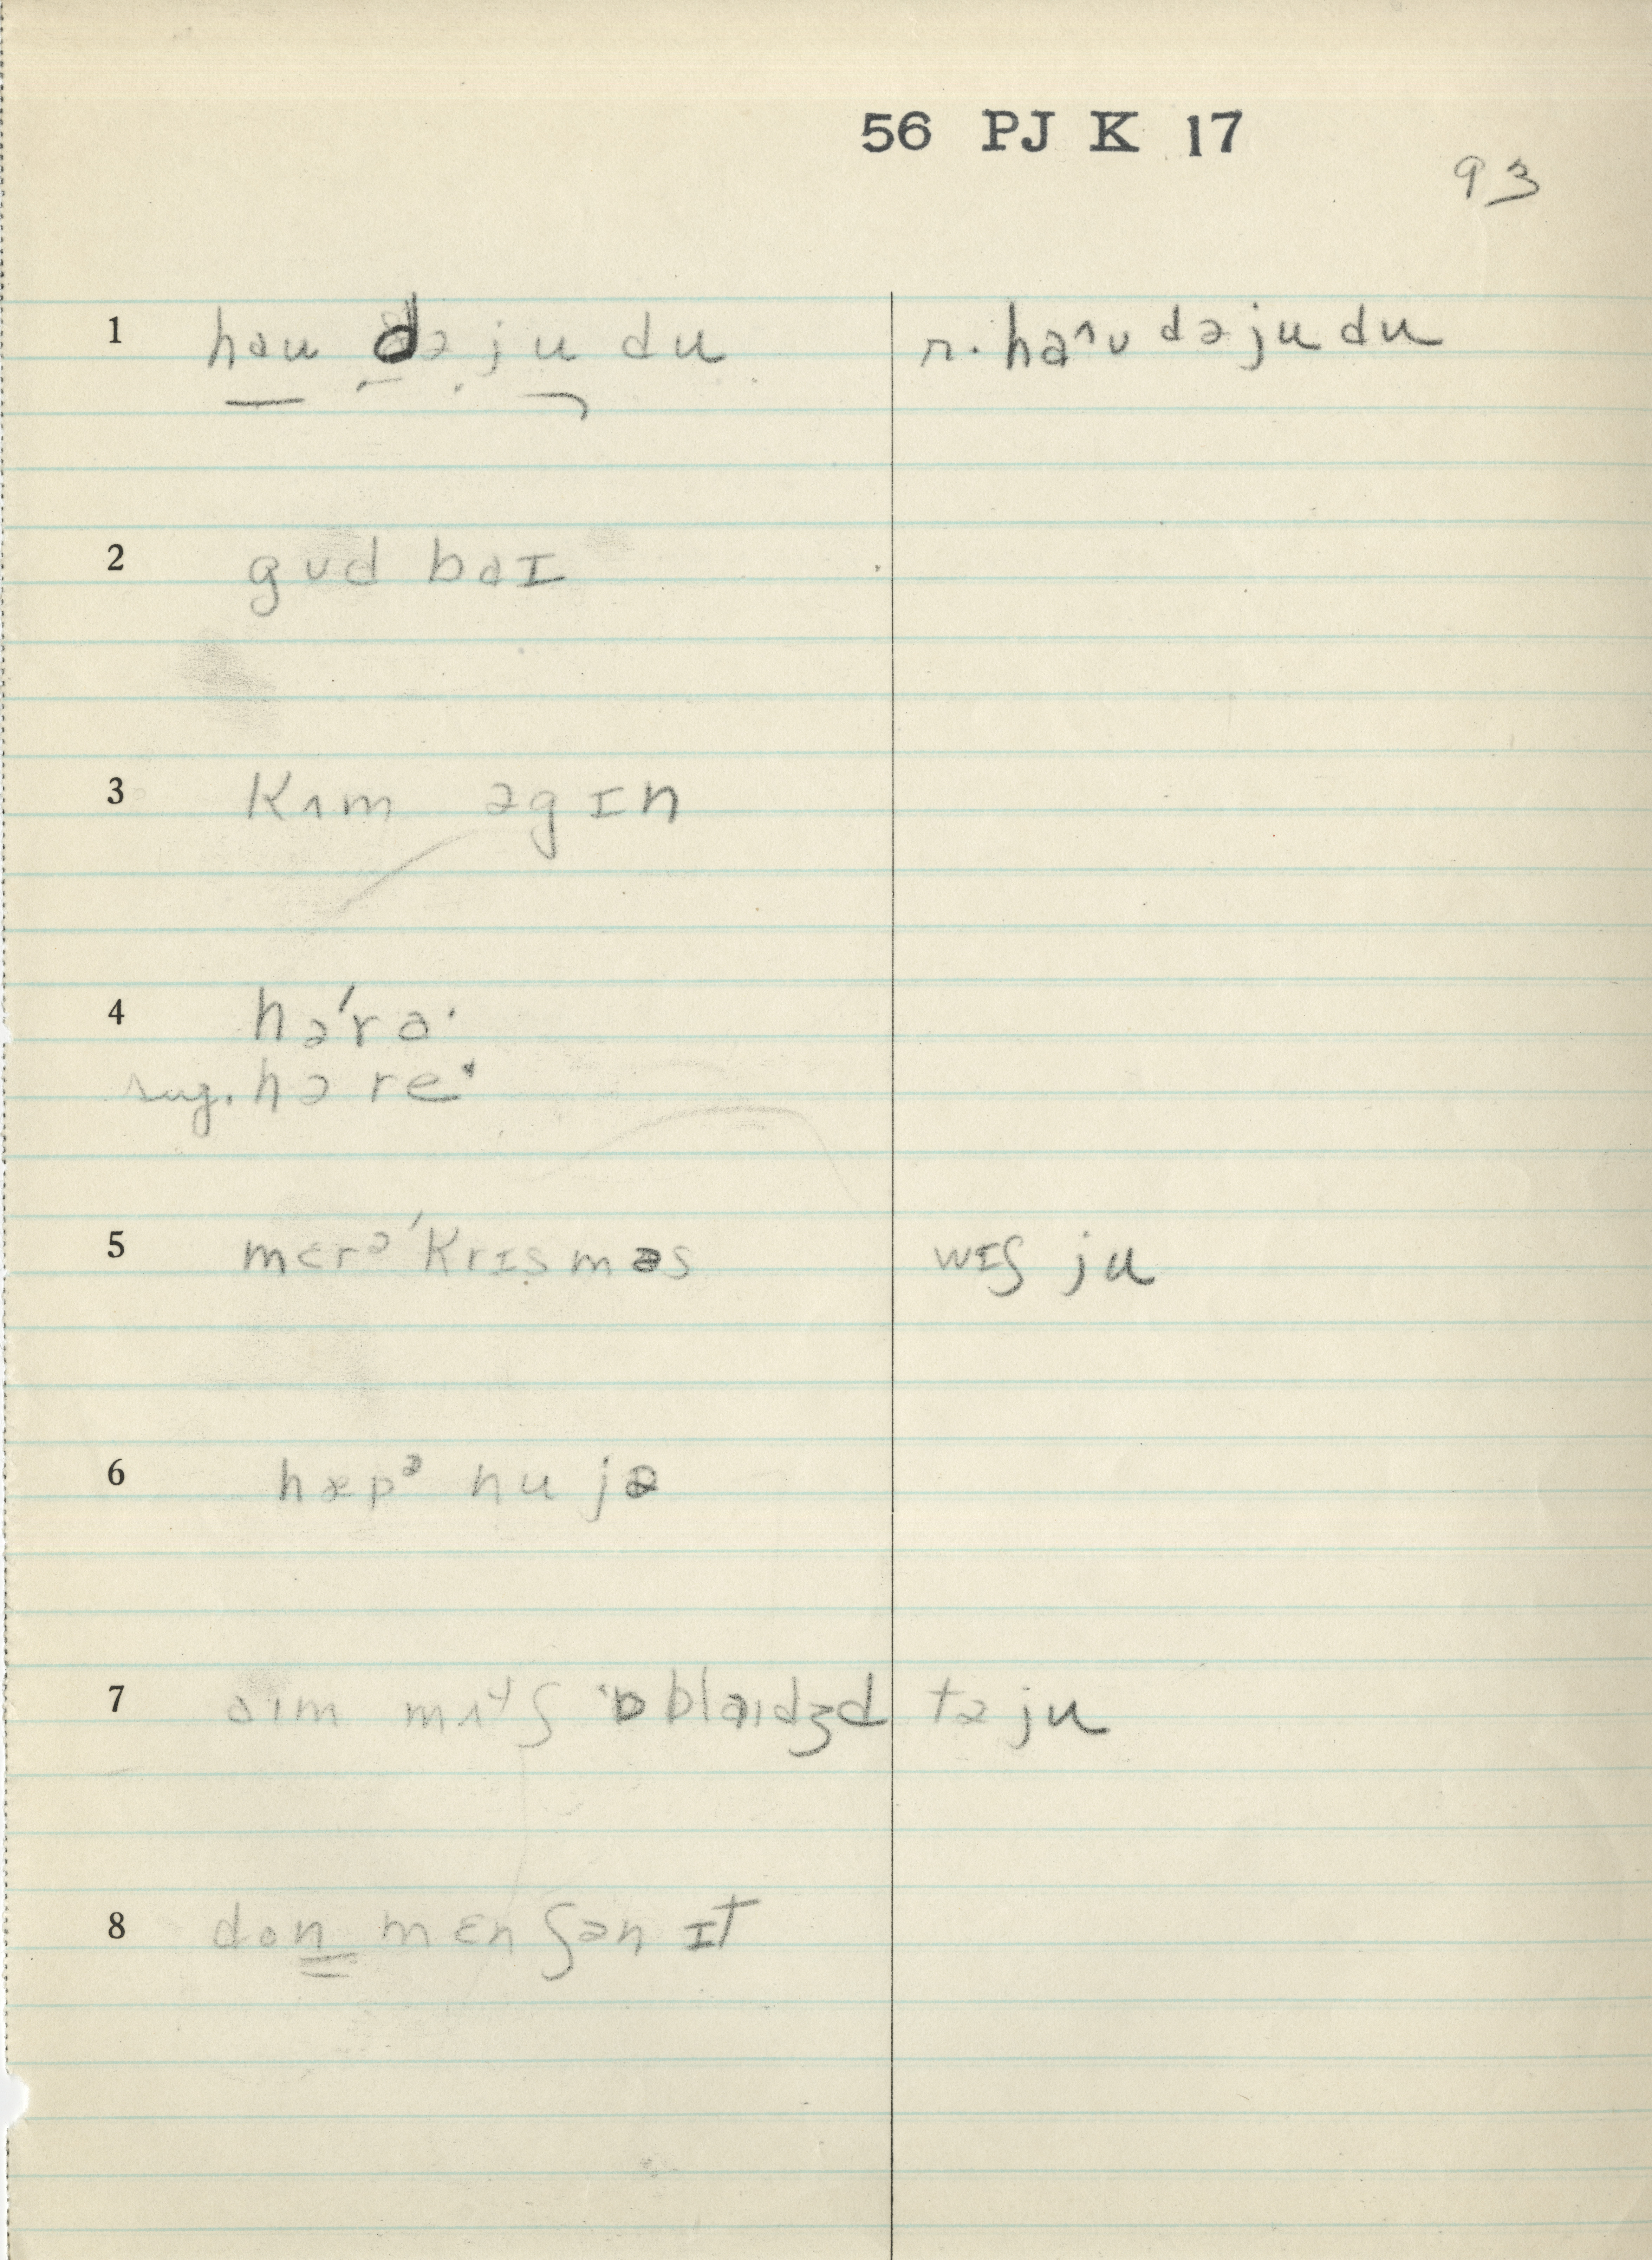 56 PJ K 17
93
1 hau də ju du r. haᶺʊ də ju du
2 gʊd baɪ
3 kʌm əgɪn
4 həˈra·
sug. həre˔
5 mɛrᵊ ˈkrɪs̩məs wɪʃ ju
6 hæpᵊ nu jə
7 aɪm mʌtʃ əblaɪdʒd tə ju
8 don mɛnʃən ɪt